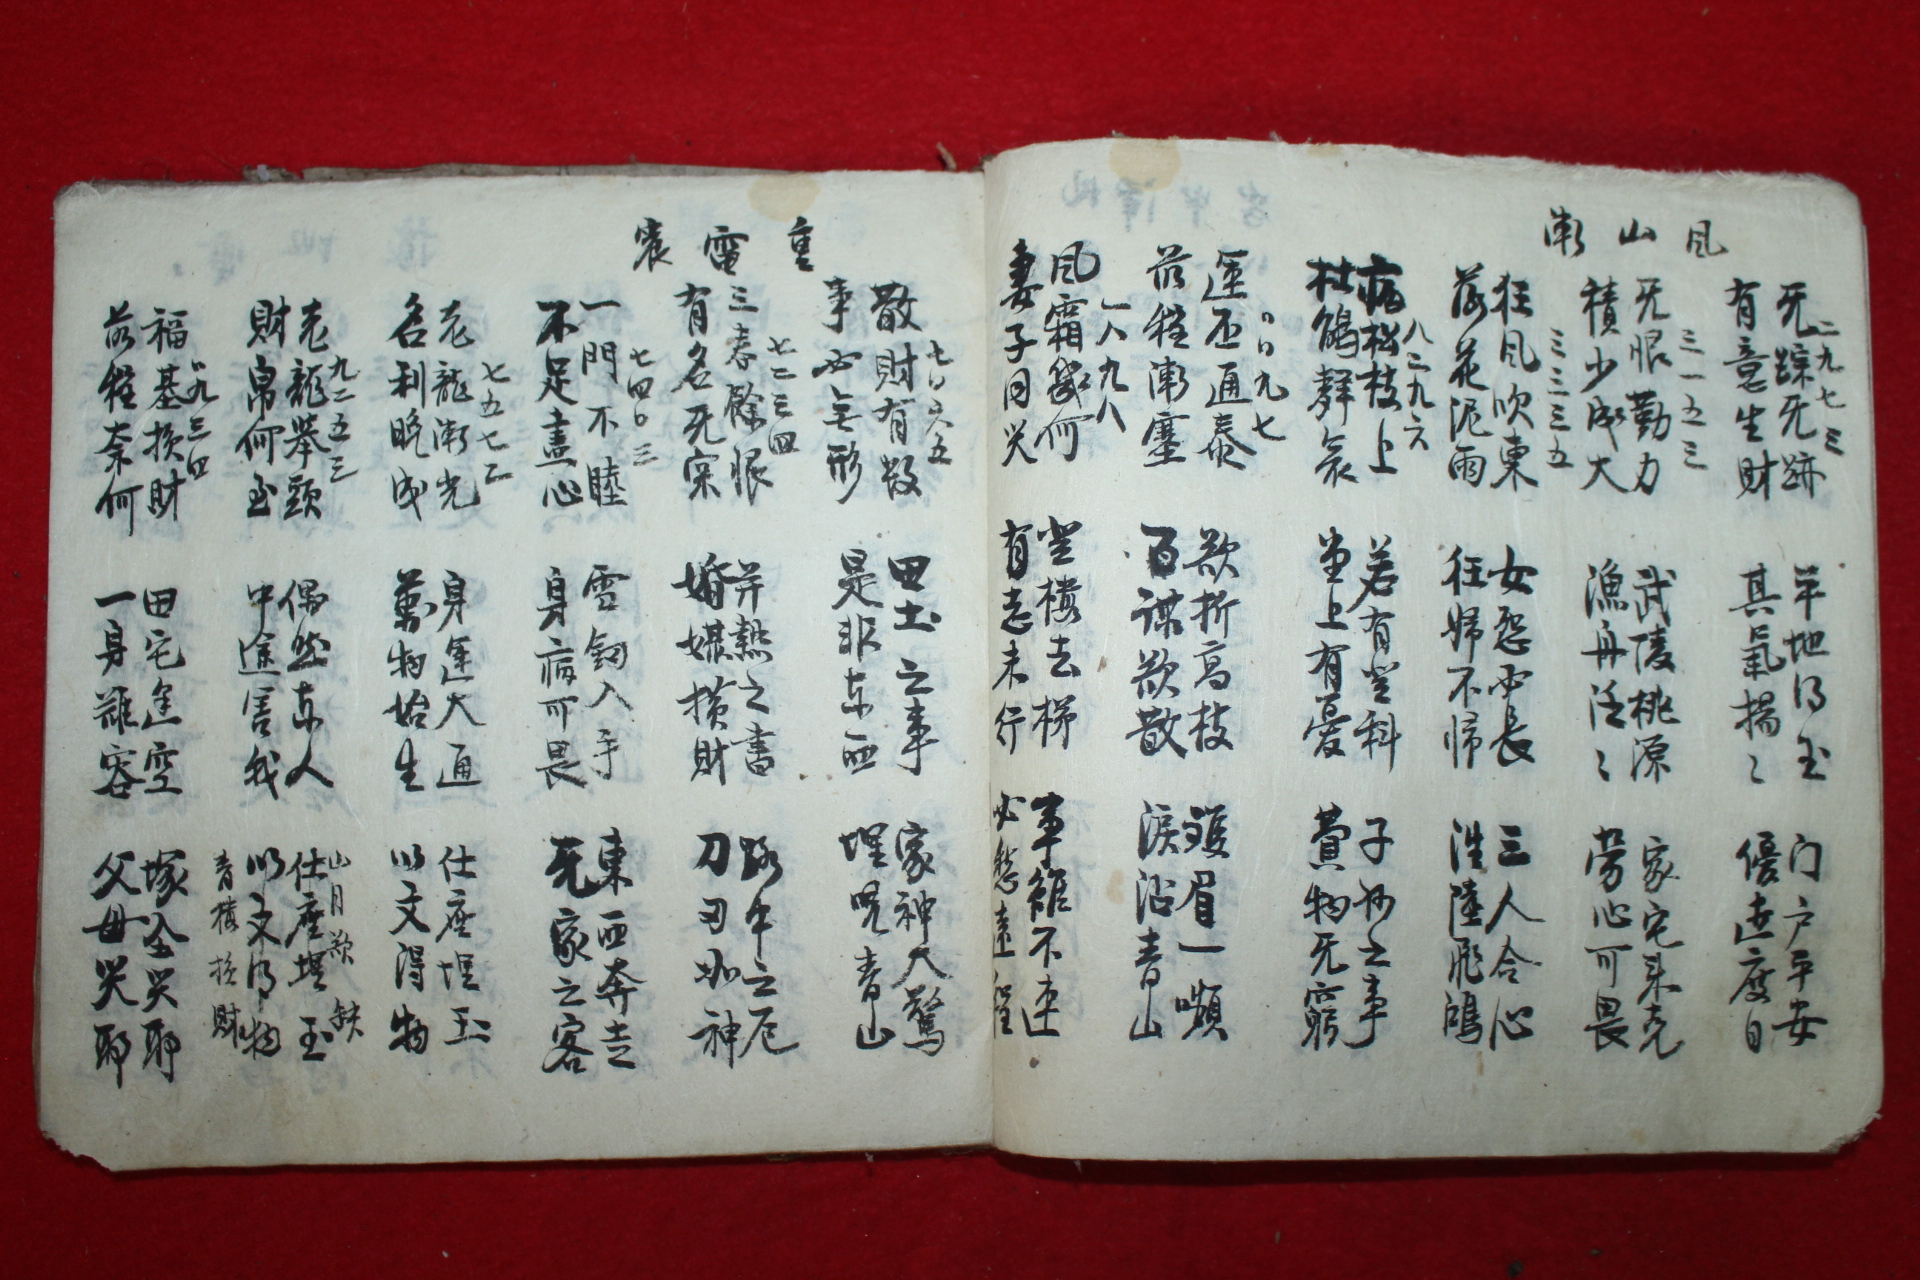 風山漸
二九七三
旡踪旡跡 平地得玉 门户平安
有意生財 其氣揚〻 優遊度日
三一五三
旡恨勤力 武陵桃源 家宅来克
積少成大 漁舟泛〻 勞心可畏
三三三五
狂風吹東 女怨必長 三人合心
落花泥雨 征婦不帰 洪陸飛鴻
八三九六
病松枝上 若有登科 子孙之事
杜鵑群哀 堂上有憂 費物旡窮
〇〇九七
運丕通泰 欲折高枝 雙眉一嚬
前程漸塞 百谋欲散 淚沾青山
一八九八
風霜幾何 登樓去梯 事雖不速
妻子同哭 有志未行 必愁遠程
重雷震
七〇六五
散財有数 田土之事 家神大驚
事必無形 是非東西 埋児青山
七二三四
三春餘恨 并熱之書 路中之厄
有名旡宗 婚媒損財 刀刃如神
七四〇三
一門不睦 雪鉤入手 東西奔走
不足盡心 身病可畏 旡家之客
七五七二
老龍漸光 身運大通 仕座埋玉
名利晩成 萬物始生 以文得物
九二五三
老龍擧頭 偶然東人 仕座埋玉
財帛何至 中途害我 以文得物
山月欲缺
青横損財
八九三四
福基損財 田宅運空 塚全哭耶
前程奈何 一身難容 父母哭耶